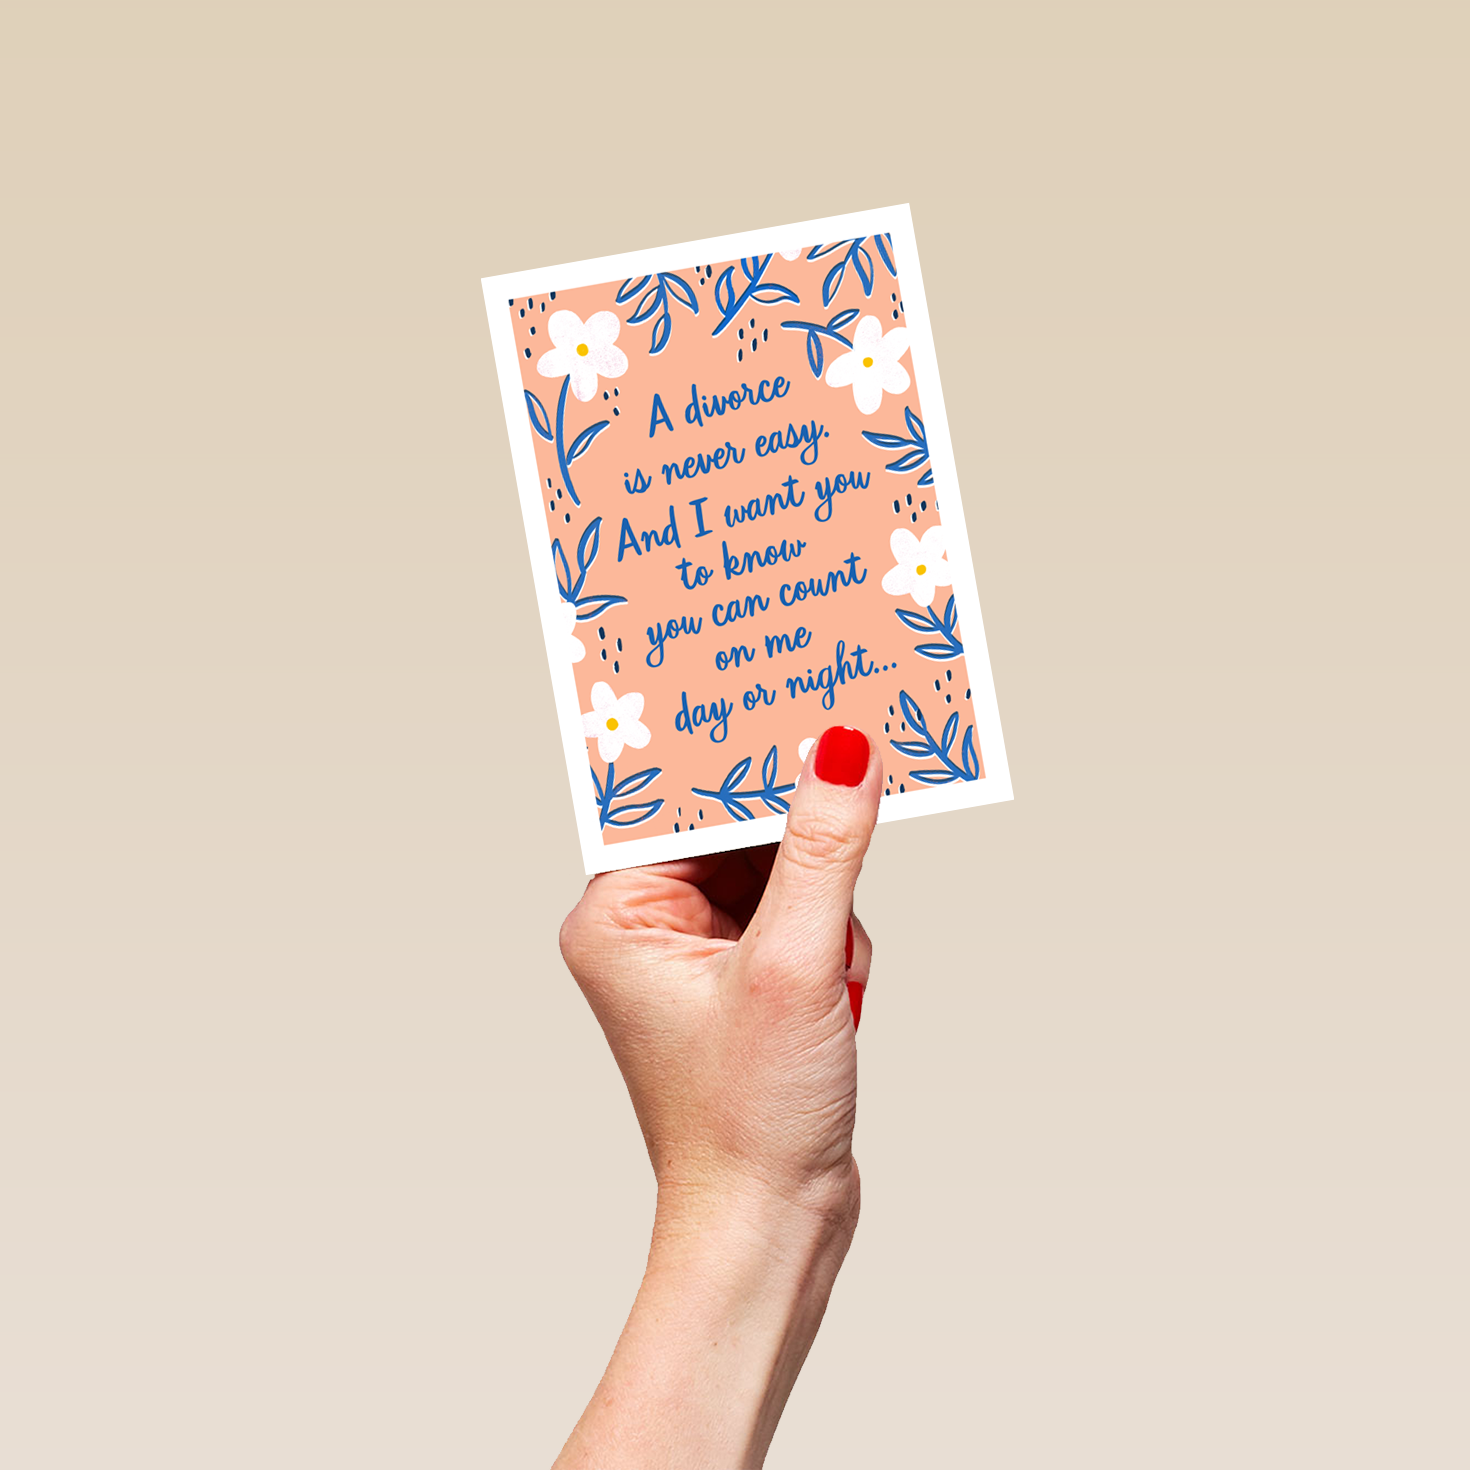 A divorce
is never easy.
And I want you
to know
you can count
on me
day or night...